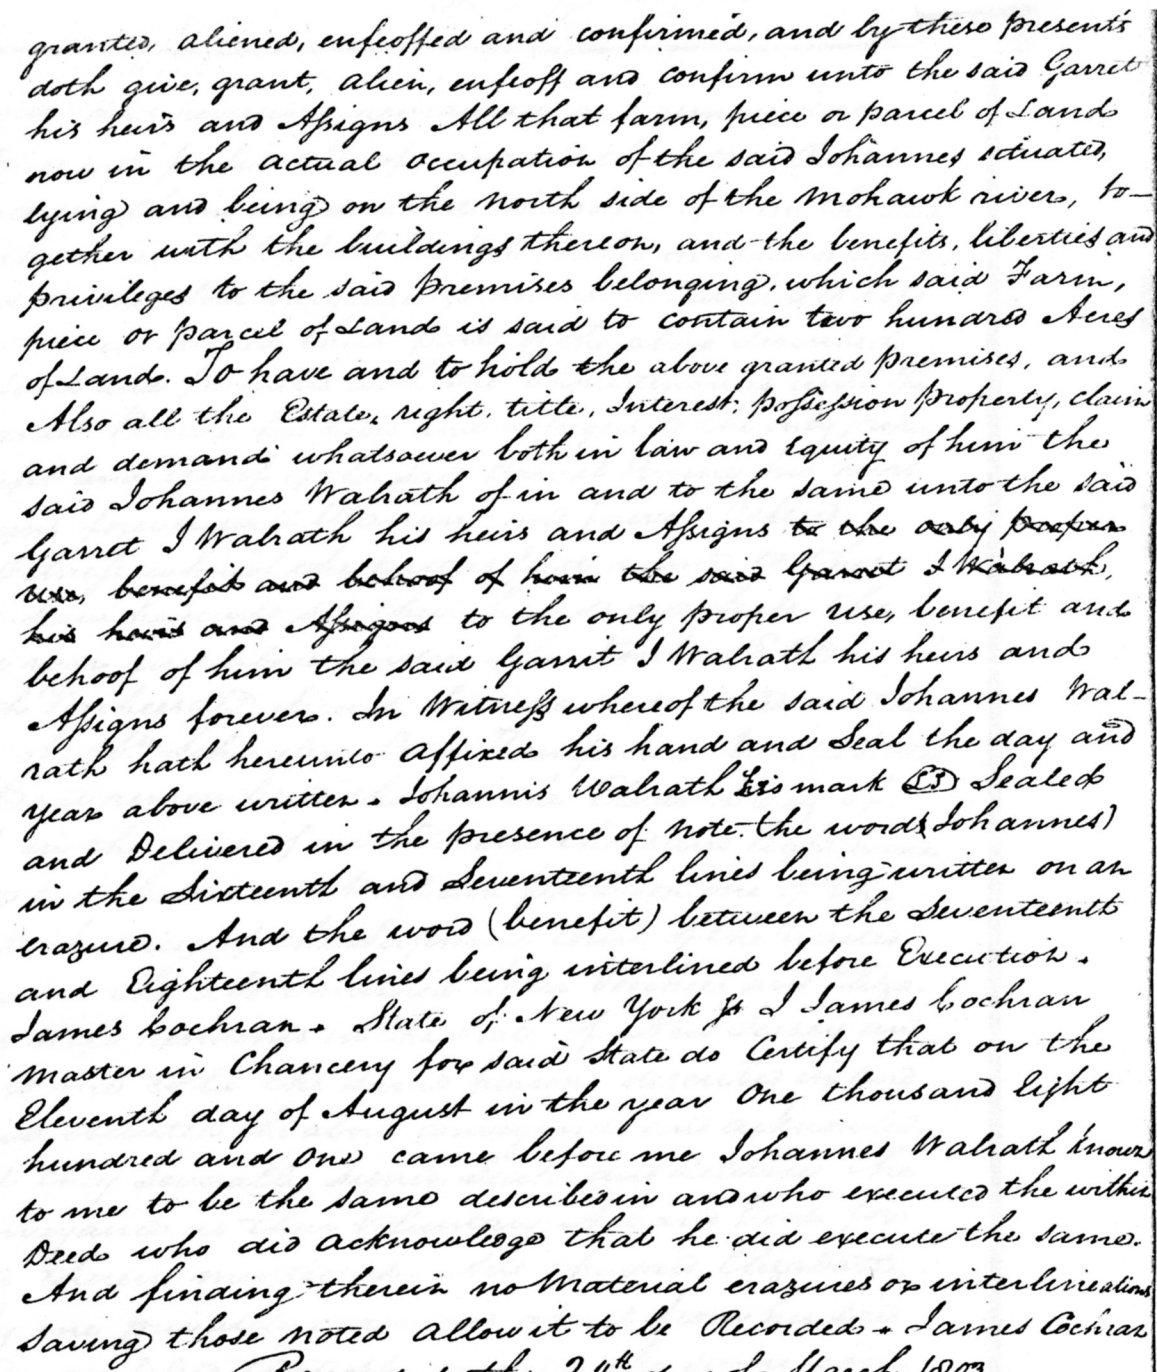 granted, aliened, enfeoffed and confirmed, and by these presents
doth give, grant, alien, enfeoff and confirm unto the said Garret
his heirs and Assigns All that farm, piece or parcel of Land
now in the actual occupation of the said Johannes situated,
lying and being on the North side of the Mohawk river, to-
gether with the buildings thereon, and the benefits, liberties and
privileges to the said premises belonging, which said Farm,
piece or parcel of Land is said to contain two hundred Acres
of Land. To have and to hold the above granted premises, and
Also all the Estate, right, title, Interest, possession property, claim
and demand whatsoever both in law and Equity of him the
said Johannes Walrath of in and to the same unto the said
Garret I Walrath his heirs and Assigns to the only proper
use, benefit and behoof of him the said Garret I Walrath,
his heirs and Assigns to the only proper use, benefit and
behoof of him the said Garrit I Walrath his heirs and
Assigns forever. In Witness whereof the said Johannes Wal-
rath hath hereunto affixed his hand and Seal the day and
year above written. Johannis Walrath his mark LS Sealed
and Delivered in the presence of note. the words Johannes)
in the Sixteenth and Seventeenth lines being written on an
erazure. And the word (benefit) between the Seventeenth
and Eighteenth lines being interlined before Execution.
James Cochran. State of New York Ss I James Cochran
Master in Chancery for said State do Certify that on the
Eleventh day of August in the year One thousand Eight
hundred and one came before me Johannes Walrath known
to me to be the same described in and who executed the within
Deed who did acknowledge that he did execute the same.
And finding therein no Material erazures or interlineations
Saving those noted allow it to be Recorded. James Cochran
the 24th day of March 1803